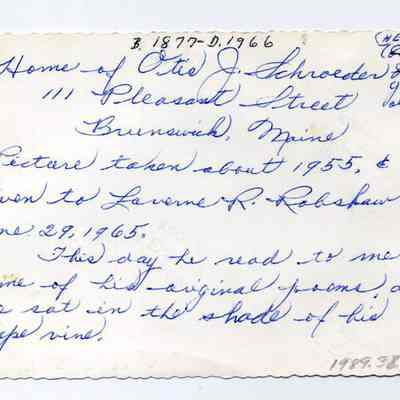 B. 1877-D. 1966
Home of Otis J. Schroeder
111 Pleasant Street
Brunswick, Maine
Picture taken about 1955, &
ven to Laverne R. Robshaw
ne 29, 1965.
This day he read to me
me of his original poems, a
e sat in the shade of his
ape vine.
1989.38